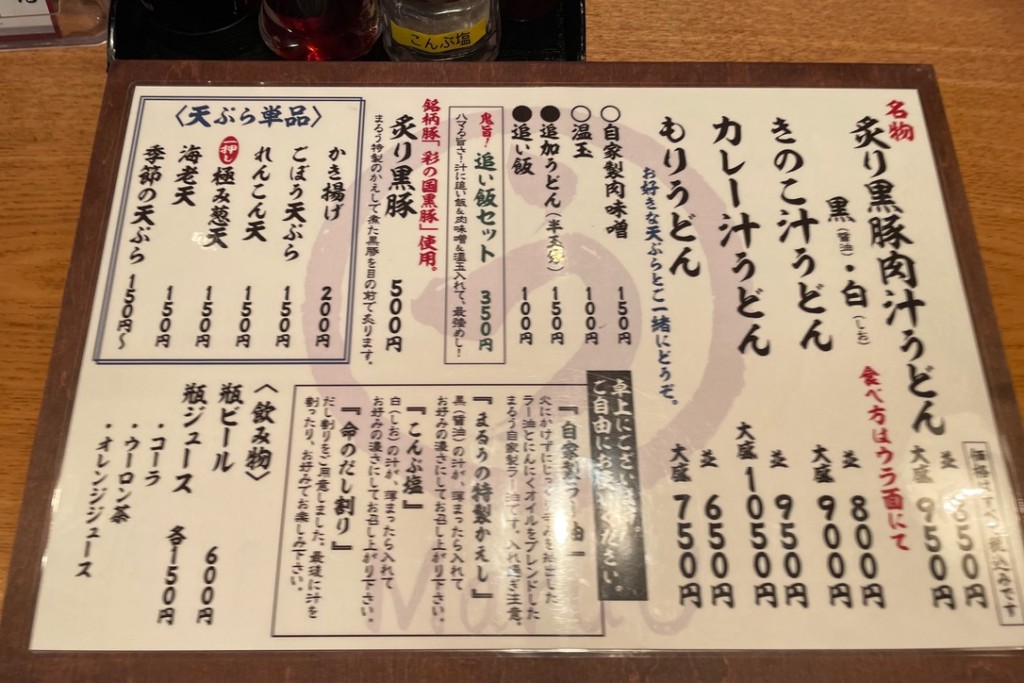 こんぶ塩
価格はすべて税込みです
名物
炙り黒豚肉汁うどん
黒(醤油)・白(しお)
食べ方はウラ面にて
並
大盛 950円
きのこ汁うどん
並 800円
大盛 900円
カレー汁うどん
並 950円
大盛 1050円
もりうどん
並 650円
大盛 750円
お好きな天ぷらとご一緒にどうぞ。
○自家製肉味噌 150円
○温玉 100円
●追加うどん(半玉分) 150円
●追い飯 100円
鬼旨! 追い飯セット 350円
ハマる旨さ!汁に追い飯&肉味噌&温玉入れて、最強めし!
銘柄豚「彩の国黒豚」使用。
炙り黒豚 500円
まるう特製のかえしで煮た黒豚を目の前で炙ります。
〈天ぷら単品〉
かき揚げ 200円
ごぼう天ぷら 150円
れんこん天 150円
一押し 極み葱天 150円
海老天 150円
季節の天ぷら 150円~
卓上にござい
ご自由にお ください。
『自家製ラー油』
ラー油とにんにくオイルをブレンドした
まるう自家製ラー油です。入れ過ぎ注意。
『まるうの特製かえし』
黒(醤油)の汁が、薄まったら入れて
お好みの濃さにしてお召し上がり下さい。
『こんぶ塩』
白(しお)の汁が、薄まったら入れて
お好みの濃さにしてお召し上がり下さい。
『命のだし割り』
だし割りをご用意しました。最後に汁を
割ったり、お好みでお楽しみ下さい。
〈飲み物〉
瓶ビール 600円
瓶ジュース 各150円
・コーラ
・ウーロン茶
・オレンジジュース